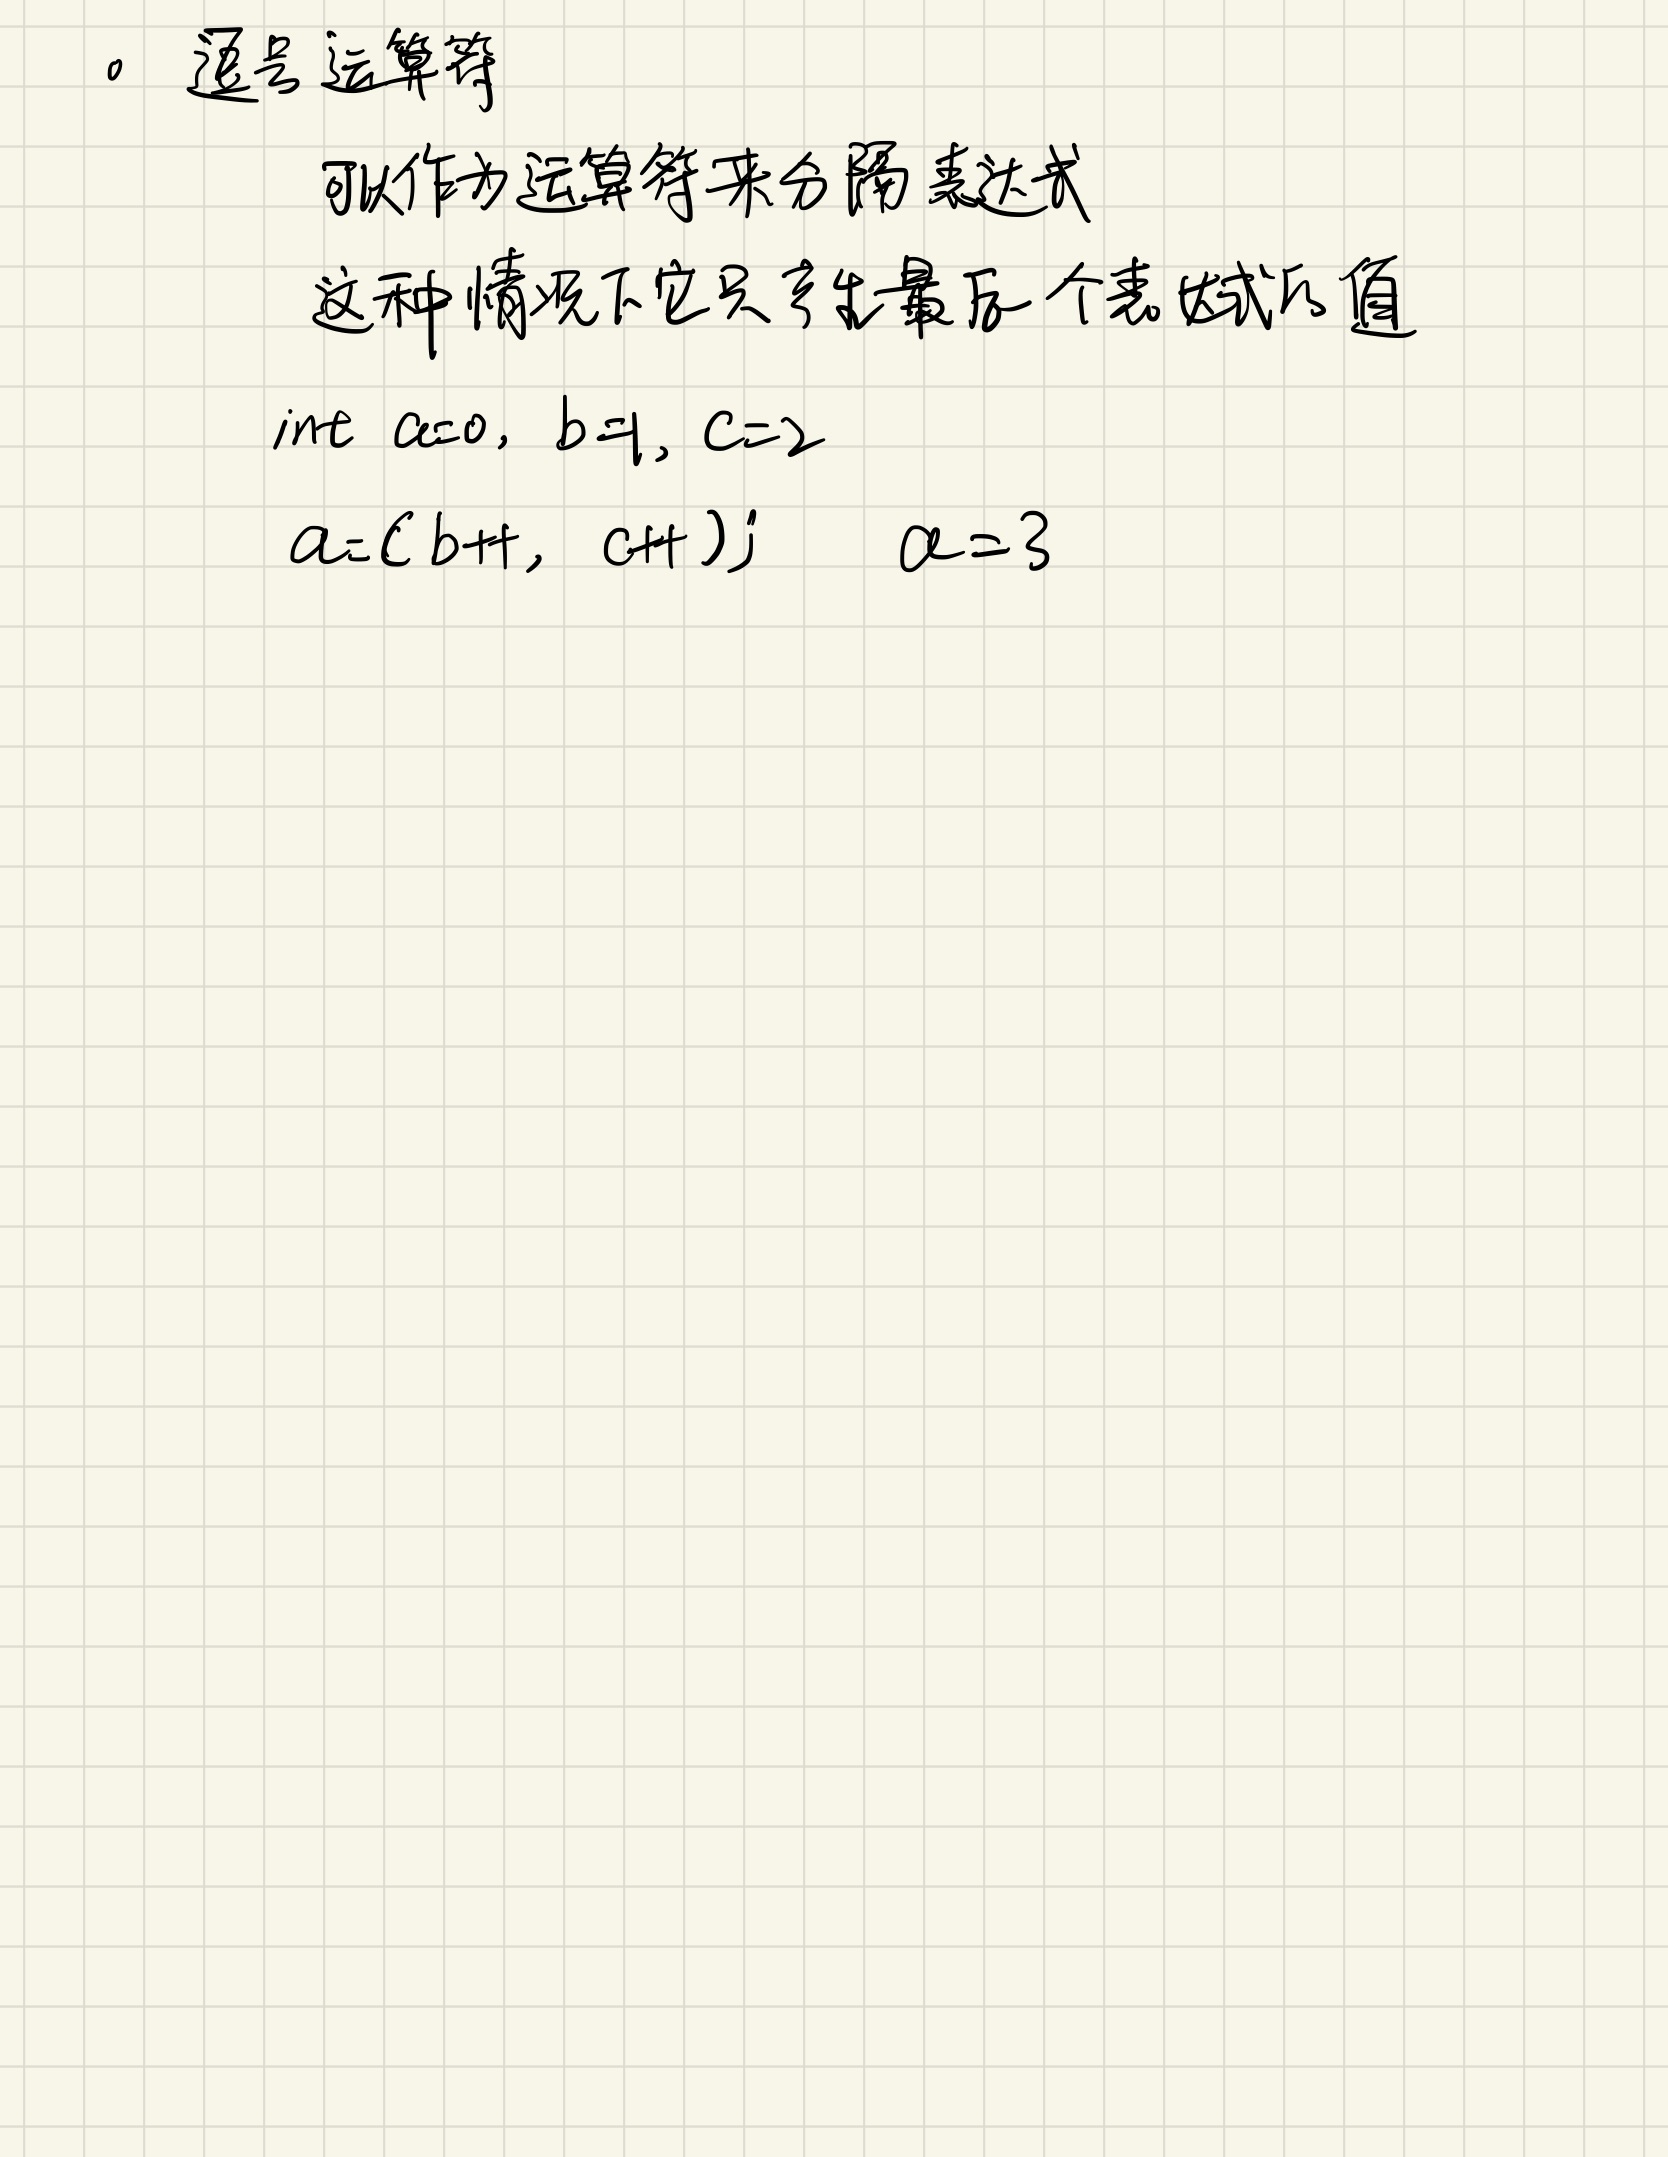 。逗号运算符
可以作为运算符来分隔表达式
这种情况下它只产生最后一个表达式的值
int a=0, b=1, c=2
a=(b++, c++); a=3